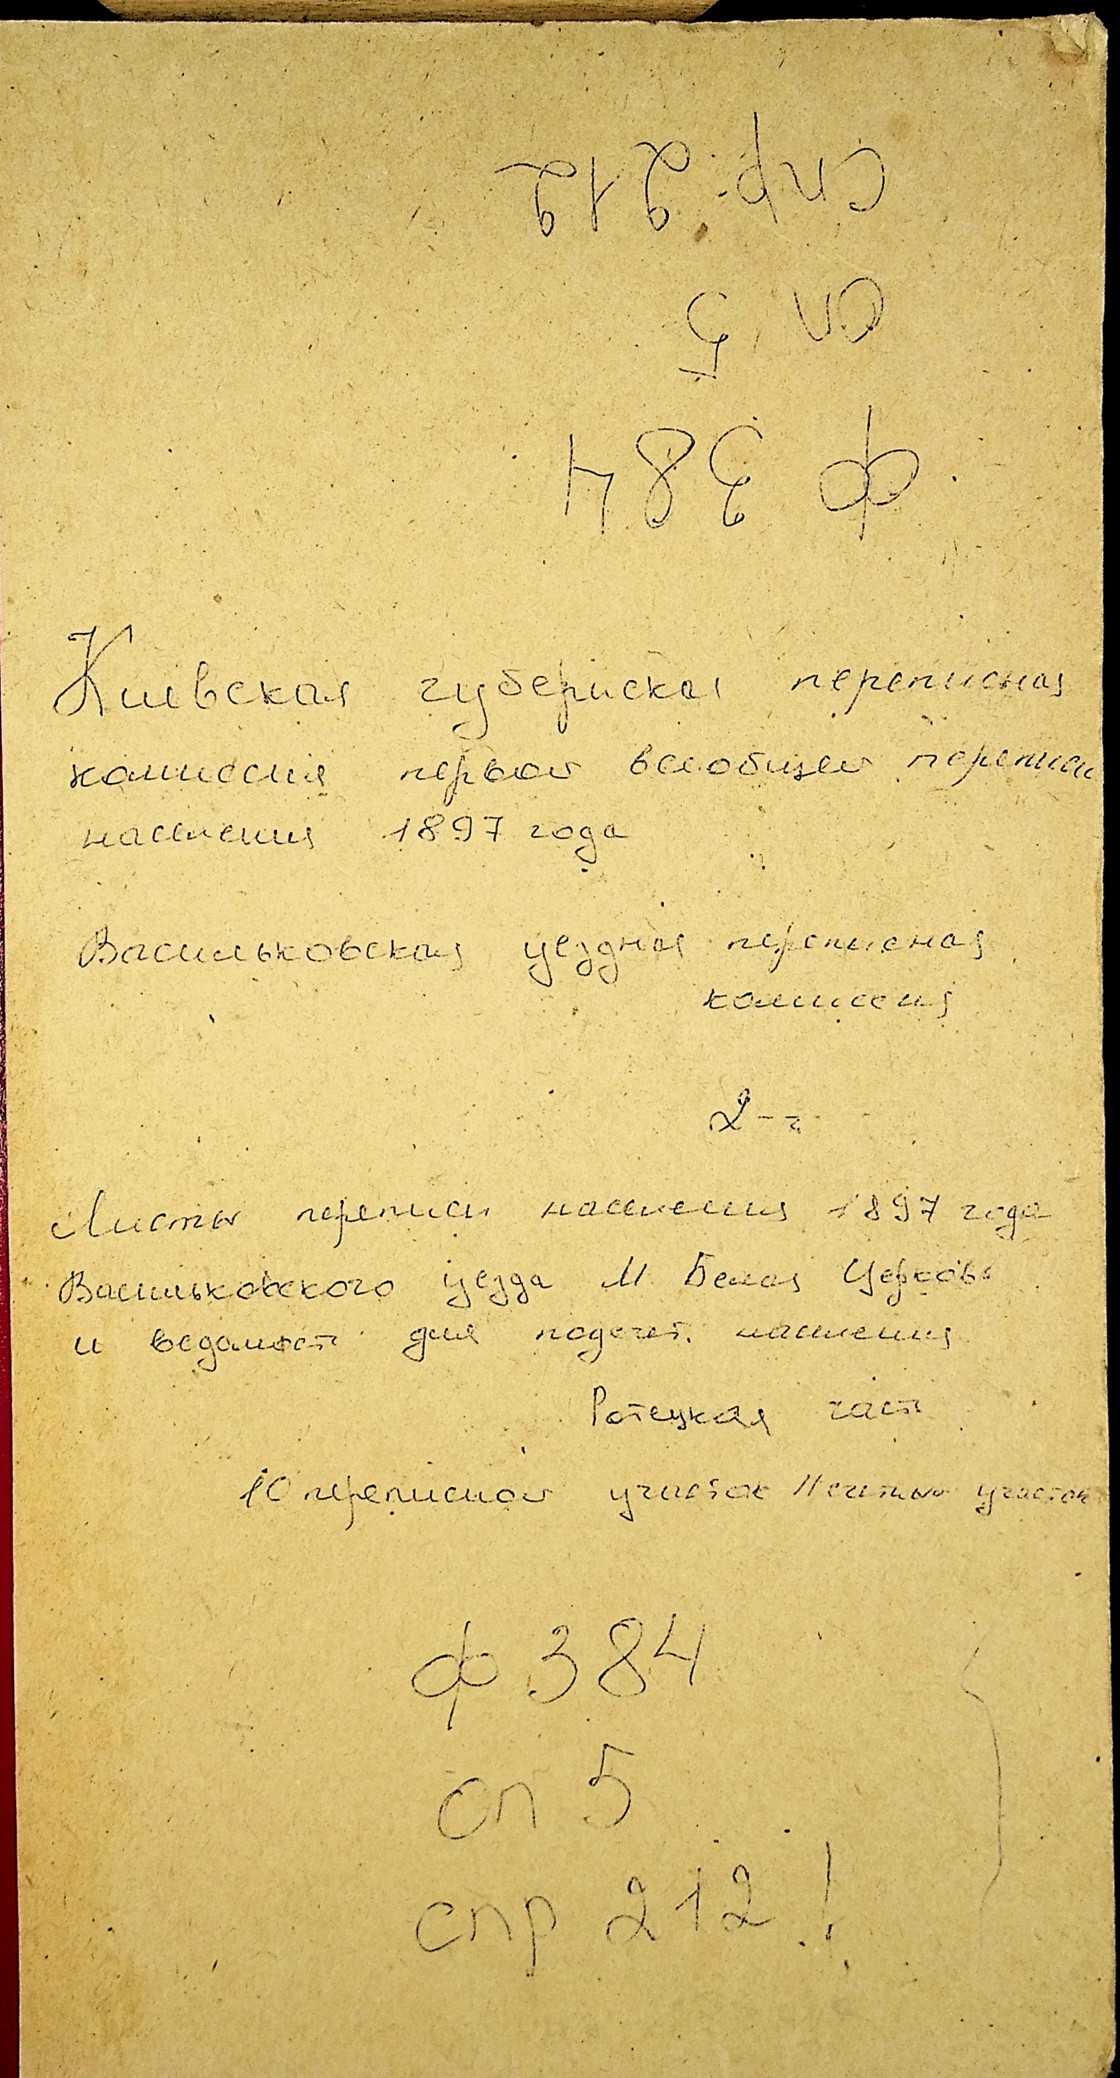 спр. 212
оп 5
ф 384
Киевская губернская переписная
комиссия первой всеобщей переписи
населения 1897 года
Васильковская уездная переписная
комиссия
Листы переписи населения 1897 года
Васильковского уезда М. Белая Церковь
и ведомост для подсчет. населения
часть
10 переписной участок участок
ф 384
оп 5
спр 212 !